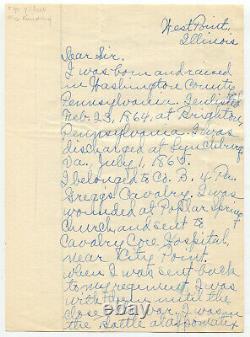 West Point,
Illinois
Dear Sir.
I was born and raised
in Washington County
Pennsylvania. I enlisted
Feb. 23, 1864, at Brighton
Pennsylvania. I was
discharged at Lynchburg
Va. July 1, 1865.
I belonged to Co. B. 4 Pa.
Gregg's Cavalry. I was
wounded at Poplar Spring
Church, and sent to
Cavalry Core Hospital,
near City Point.
When I was sent back
to my regiment I was
with them until the
close of war. I was in
the Battle at